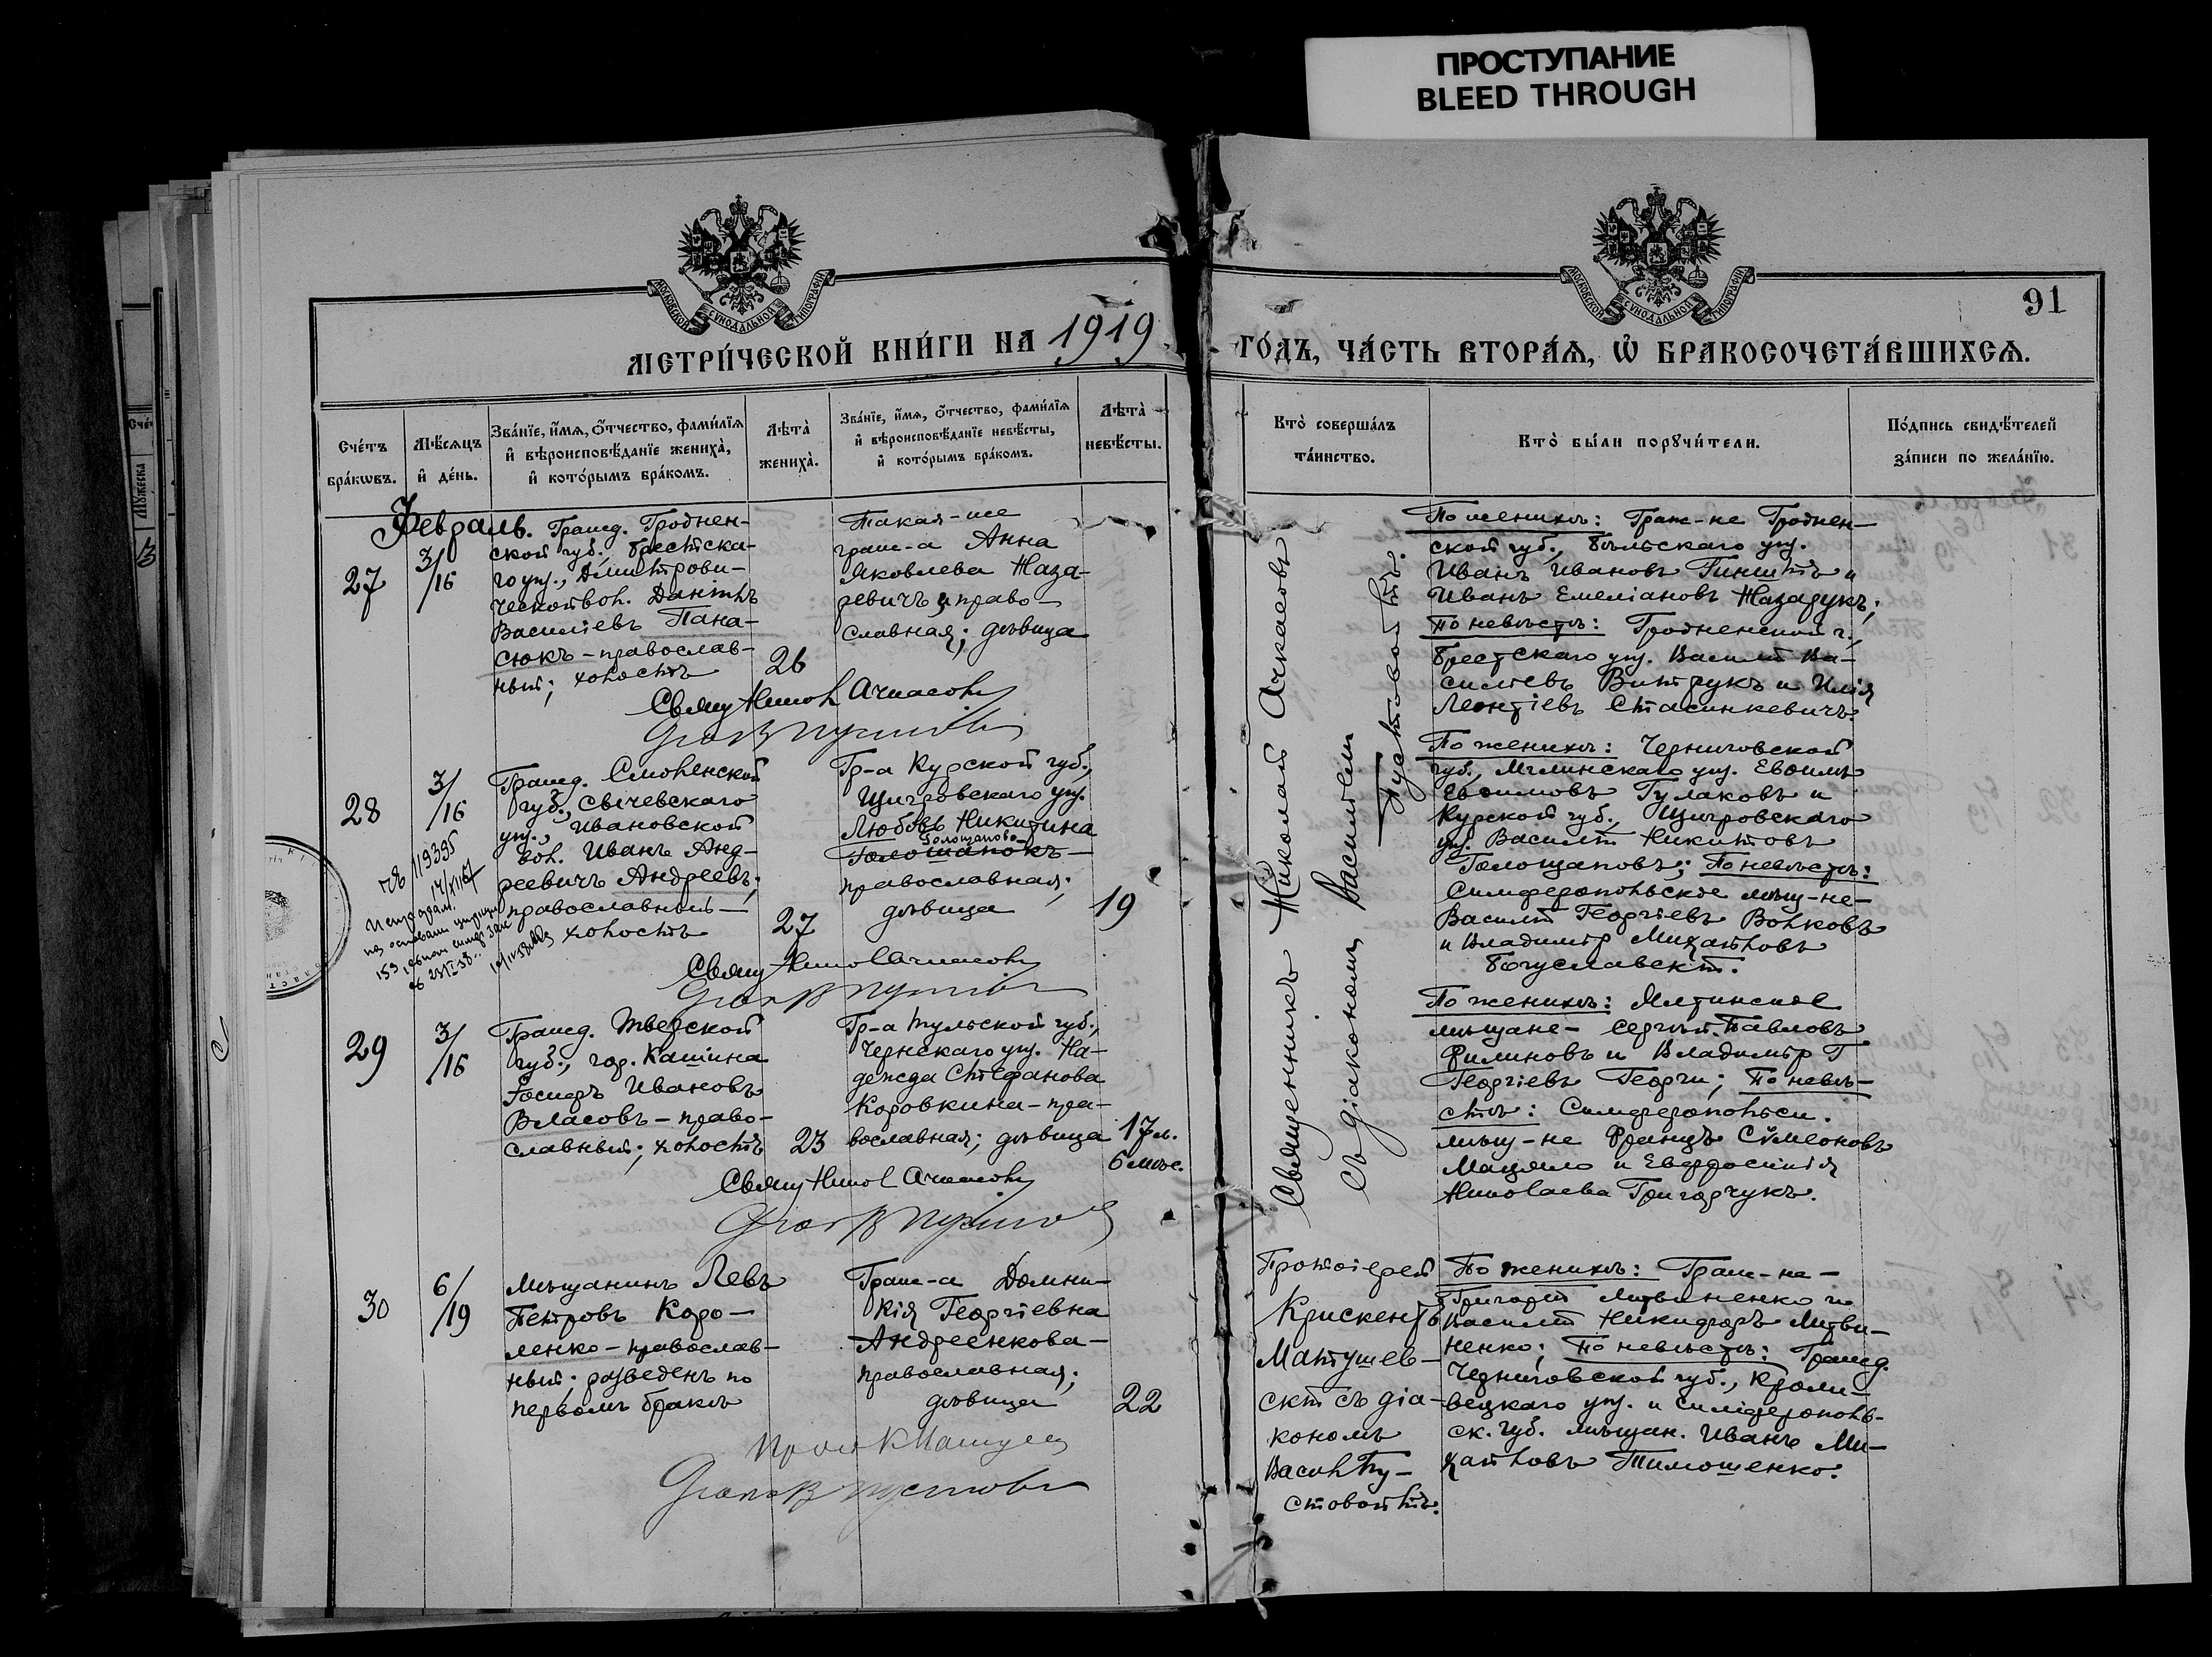 ПРОСТУПАНИЕ
BLEED THROUGH
МОСКОВСКОЙ СУНОДАЛЬНОЙ ТИПОГРАФІИ
МОСКОВСКОЙ СУНОДАЛЬНОЙ ТИПОГРАФІИ
91
МЕТРИ́ЧЕСКОЙ КНИ́ГИ НА 1919
ГО́ДЪ, ЧА́СТЬ ВТОРА́Ѧ, Ѡ҆ БРАКОСОЧЕТА́ВШИХСѦ.
Сче́тъ
бра́кѡвъ.
Мѣ́сяцъ
и҆ де́нь.
Зва́нїе, и҆́мѧ, ѻ҆́тчество, фами́лїѧ
и҆ вѣроисповѣ́данїе жениха̀,
и҆ кото́рымъ бра́комъ.
Лѣта̀
жениха̀.
Зва́нїе, и҆́мѧ, ѻ҆́тчество, фами́лїѧ
и҆ вѣроисповѣ́данїе невѣ́сты,
и҆ кото́рымъ бра́комъ.
Лѣта̀
невѣ́сты.
Кто̀ соверша́лъ
та́инство.
Кто̀ бы́ли порꙋчи́тели.
По́дпись свидѣ́телей
за́писи по жела́нїю.
Февраль.
27
3/16
Гражд. Гроднен-
ской губ., Брестска-
го уѣз., Дмитрови-
ческой вол. Даніилъ
Василіевъ Пана-
сюкъ - православ-
ный; холостъ
26
Такая-же
граж-а Анна
Яковлева Наза-
ревичъ, право-
славная; дѣвица
Священникъ Николай Ачкасовъ
съ діакономъ Василіемъ
Пустовойтъ.
По женихѣ: Граж-не Гроднен-
ской губ., Бѣльскаго уѣз.
Иванъ Ивановъ и
Иванъ Емеліановъ Назарукъ;
По невѣстѣ: Гродненской г.,
Брестскаго уѣз. Василій Ва-
силіевъ Витрукъ и Илія
Леонтіевъ Стасинкевичъ.
28
3/16
Гражд. Смоленской
губ., Сычевскаго
уѣз., Ивановской
вол. Иванъ Анд-
реевичъ Андреевъ;
православный -
холостъ
27
Гр-а Курской губ.,
Щигровскаго уѣз.
Любовь Никитина
Голощапова
Голощапокъ -
православная;
дѣвица
19
По женихѣ: Черниговской
губ., Мглинскаго уѣз. Евѳимъ
Евѳимовъ Гулаковъ и
Курской губ., Щигровскаго
уѣз. Василій Никитовъ
Голощаповъ; По невѣстѣ:
Симферопольскіе мѣщ-не -
Василій Георгіевъ Волковъ
и Владиміръ Михайловъ
Богуславскій.
119395
29
3/16
Гражд. Тверской
губ., гор. Кашина
Іосифъ Ивановъ
Власовъ - право-
славный; холостъ
23
Гр-а Тульской губ.,
Чернскаго уѣз. На-
дежда Стефанова
Коровкина - пра-
вославная; дѣвица
17 л.
6 мѣс.
По женихѣ: Ялтинскіе
мѣщане - Сергѣй Павловъ
Филиновъ и Владиміръ Г
Георгіевъ Георги; По невѣ-
стѣ: Симферопольск.
мѣщ-не Францъ Сѵмеоновъ
Мацяло и Евфросинія
Николаева Григорчукъ.
30
6/19
Мѣщанинъ Левъ
Петровъ Коро-
ленко - православ-
ный; разведенъ по
первомъ бракѣ
Граж-а Домни-
кія Георгіевна
Андреенкова -
православная;
дѣвица
22
Протоіерей
Крискентъ
Матушев-
скій съ діа-
кономъ
Васил. Пу-
стовойтъ.
По женихѣ: Граж-не -
Григорій Литвиненко и
Василій Никифоръ Литви-
ненко; По невѣстѣ: Гражд.
Черниговской губ., Кроле-
вецкаго уѣз. и Симферополь-
ск. губ. мѣщан. Иванъ Ми-
хайловъ Тимошенко.